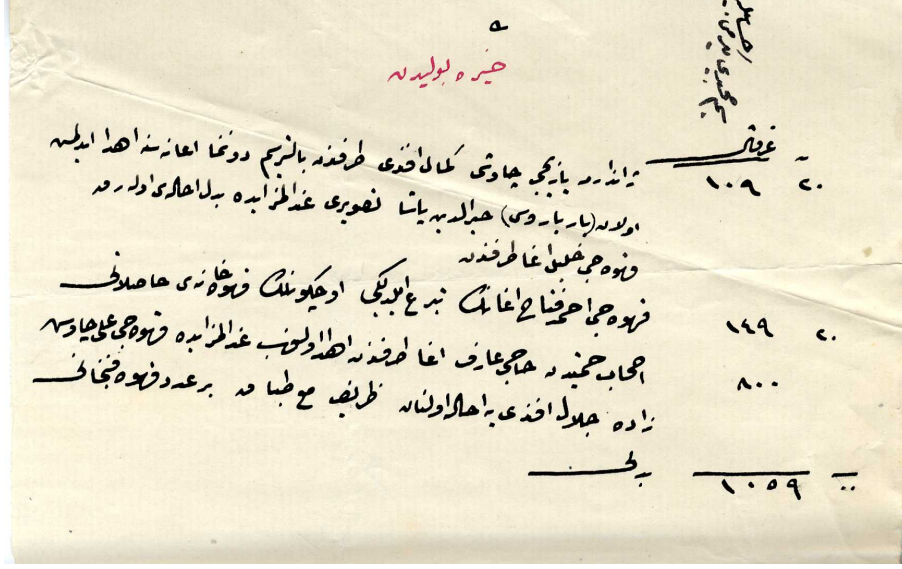 خيره بوليدن
غروش
٢٠ ١٠٩ ژاندارمه يازيجى چاوشى كمال افندى طرفندن بالترسيم دوننما اعانه سنه اهدا ايدلمش
اولان (بارباروس) خيرالدين پاشا تصويرى عندالمزايده بدل احالهسى اوله رق
قهوه جى خليل اغا طرفندن
٢٠ ١٤٩ قهوه جى احمد فتاح اغانك تبرع ايلديكى اوچ كونلك قهوه خانه سى حاصلاتى
٨٠٠ اصحاب حميتدن حاجى عارف اغا طرفندن اهدا اولنوب عندالمزايده قهوه جى على چاوش
زاده جلال افندى يه احاله اولنان ظريف مع طباق بر عدد قهوه فنجانى
بدلى
١٠٥٩